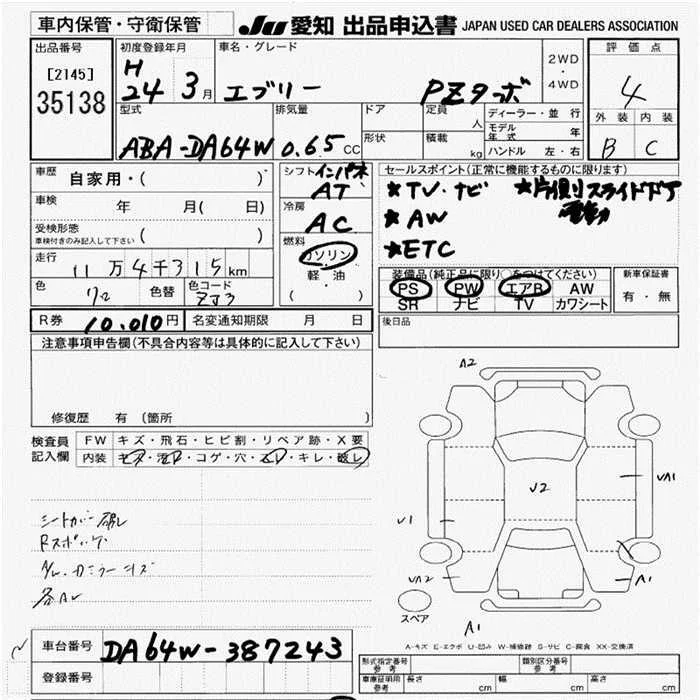 車内保管・守衛保管
JU 愛知 出品申込書 JAPAN USED CAR DEALERS ASSOCIATION
出品番号
[2145]
35138
初度登録年月
H
24 3月
車名・グレード
エブリー PZターボ
2WD
・
4WD
評価点
4
外装 内装
B C
型式
ABA-DA64W
排気量
0.65 CC
ドア
形状
定員
人
積載
kg
ディーラー・並行
モデル年式 年
ハンドル 左・右
車歴
自家用・( )
車検
年 月( 日)
受検形態
車検付きのみ記入して下さい ( )
走行
11万4千315km
色
色替
色コード
ZJ3
シフト インパネ
AT
冷房
AC
燃料
ガソリン
軽・油
( )
セールスポイント(正常に機能するものに限ります)
★TV・ナビ ★片側スライドドア
電動
★AW
★ETC
装備品(純正品に限り○をつけてください)
PS PW エアB AW
SR ナビ TV カワシート
新車保証書
有・無
R券 10,010円
名変通知期限 月 日
後日品
注意事項申告欄(不具合内容等は具体的に記入して下さい)
修復歴 有 (箇所 )
検査員
記入欄
FW キズ・飛石・ヒビ割・リペア跡・X要
内装 キズ・汚レ・コゲ・穴・スレ・キレ・破レ
シートカバー破レ
各AL
A2
U2
U1
UA1
UA2
A1
A1
スペア
A-キズ E-エクボ U-凹み W-補修跡 S-サビ C-腐食 XX-交換済
車台番号 DA64W-387243
登録番号
形式指定番号
参考
類別区分番号
参考
車庫証明用
参考
長さ cm 幅 cm 高さ cm